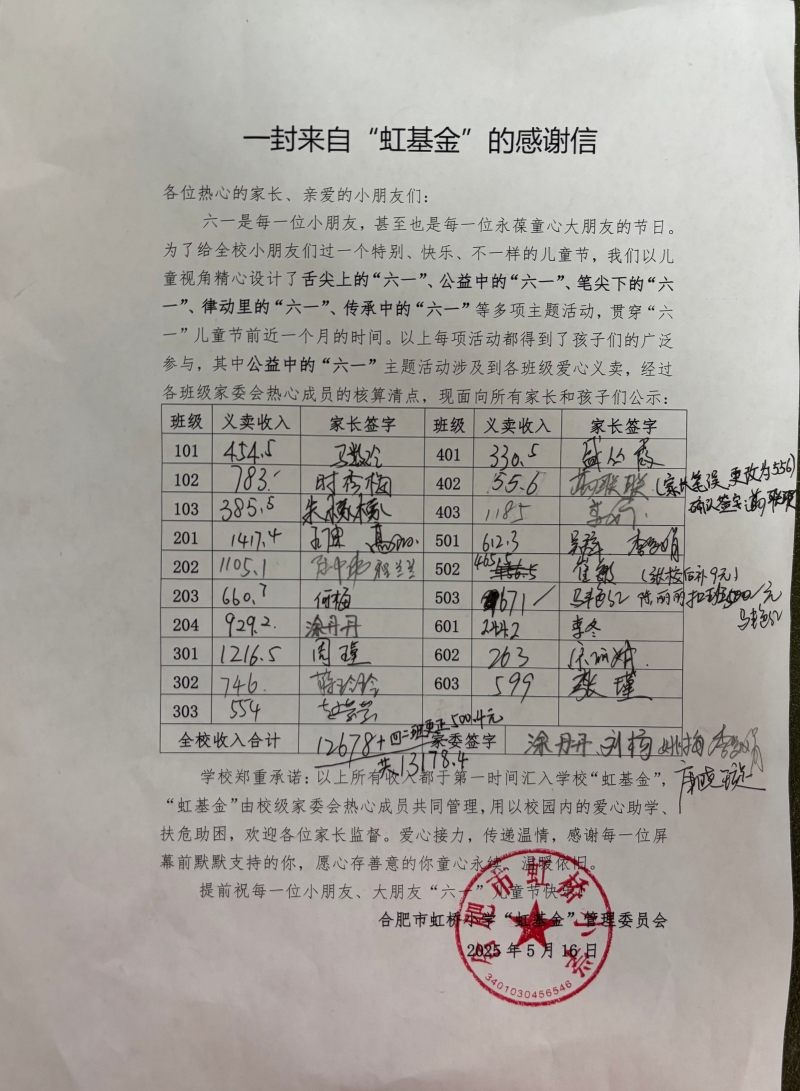 一封来自“虹基金”的感谢信
各位热心的家长、亲爱的小朋友们：
六一是每一位小朋友，甚至也是每一位永葆童心大朋友的节日。
为了给全校小朋友们过一个特别、快乐、不一样的儿童节，我们以儿
童视角精心设计了舌尖上的“六一”、公益中的“六一”、笔尖下的“六
一”、律动里的“六一”、传承中的“六一”等多项主题活动，贯穿“六
一”儿童节前近一个月的时间。以上每项活动都得到了孩子们的广泛
参与，其中公益中的“六一”主题活动涉及到各班级爱心义卖，经过
各班级家委会热心成员的核算清点，现面向所有家长和孩子们公示：
班级 义卖收入 家长签字 班级 义卖收入 家长签字
101 454.5 401 330.5
102 783.- 时秀梅 402 55.6 (家长笔误,更改为556)
103 385.5 403 1185
201 1417.4 501 612.3
202 1105.1 502 465.5 崔敏 (张校后补9元)
203 660.7 何梅 503 671/ 马艳 陈丽丽
204 929.2 涂丹丹 601 2442 李冬
301 1216.5 周瑾 602 263
302 746. 蒋玲玲 603 599 张瑾
303 554
全校收入合计 12678+四二班更正500.4元 家委签字 涂丹丹 刘梅 姚梅
共13178.4
学校郑重承诺：以上所有收入都于第一时间汇入学校“虹基金”，
“虹基金”由校级家委会热心成员共同管理，用以校园内的爱心助学、
扶危助困，欢迎各位家长监督。爱心接力，传递温情，感谢每一位屏
幕前默默支持的你，愿心存善意的你童心永续，温暖依旧。
提前祝每一位小朋友、大朋友“六一”儿童节快乐！
合肥市虹桥小学“虹基金”管理委员会
2025年5月16日
合肥市虹桥小学
3401030456546